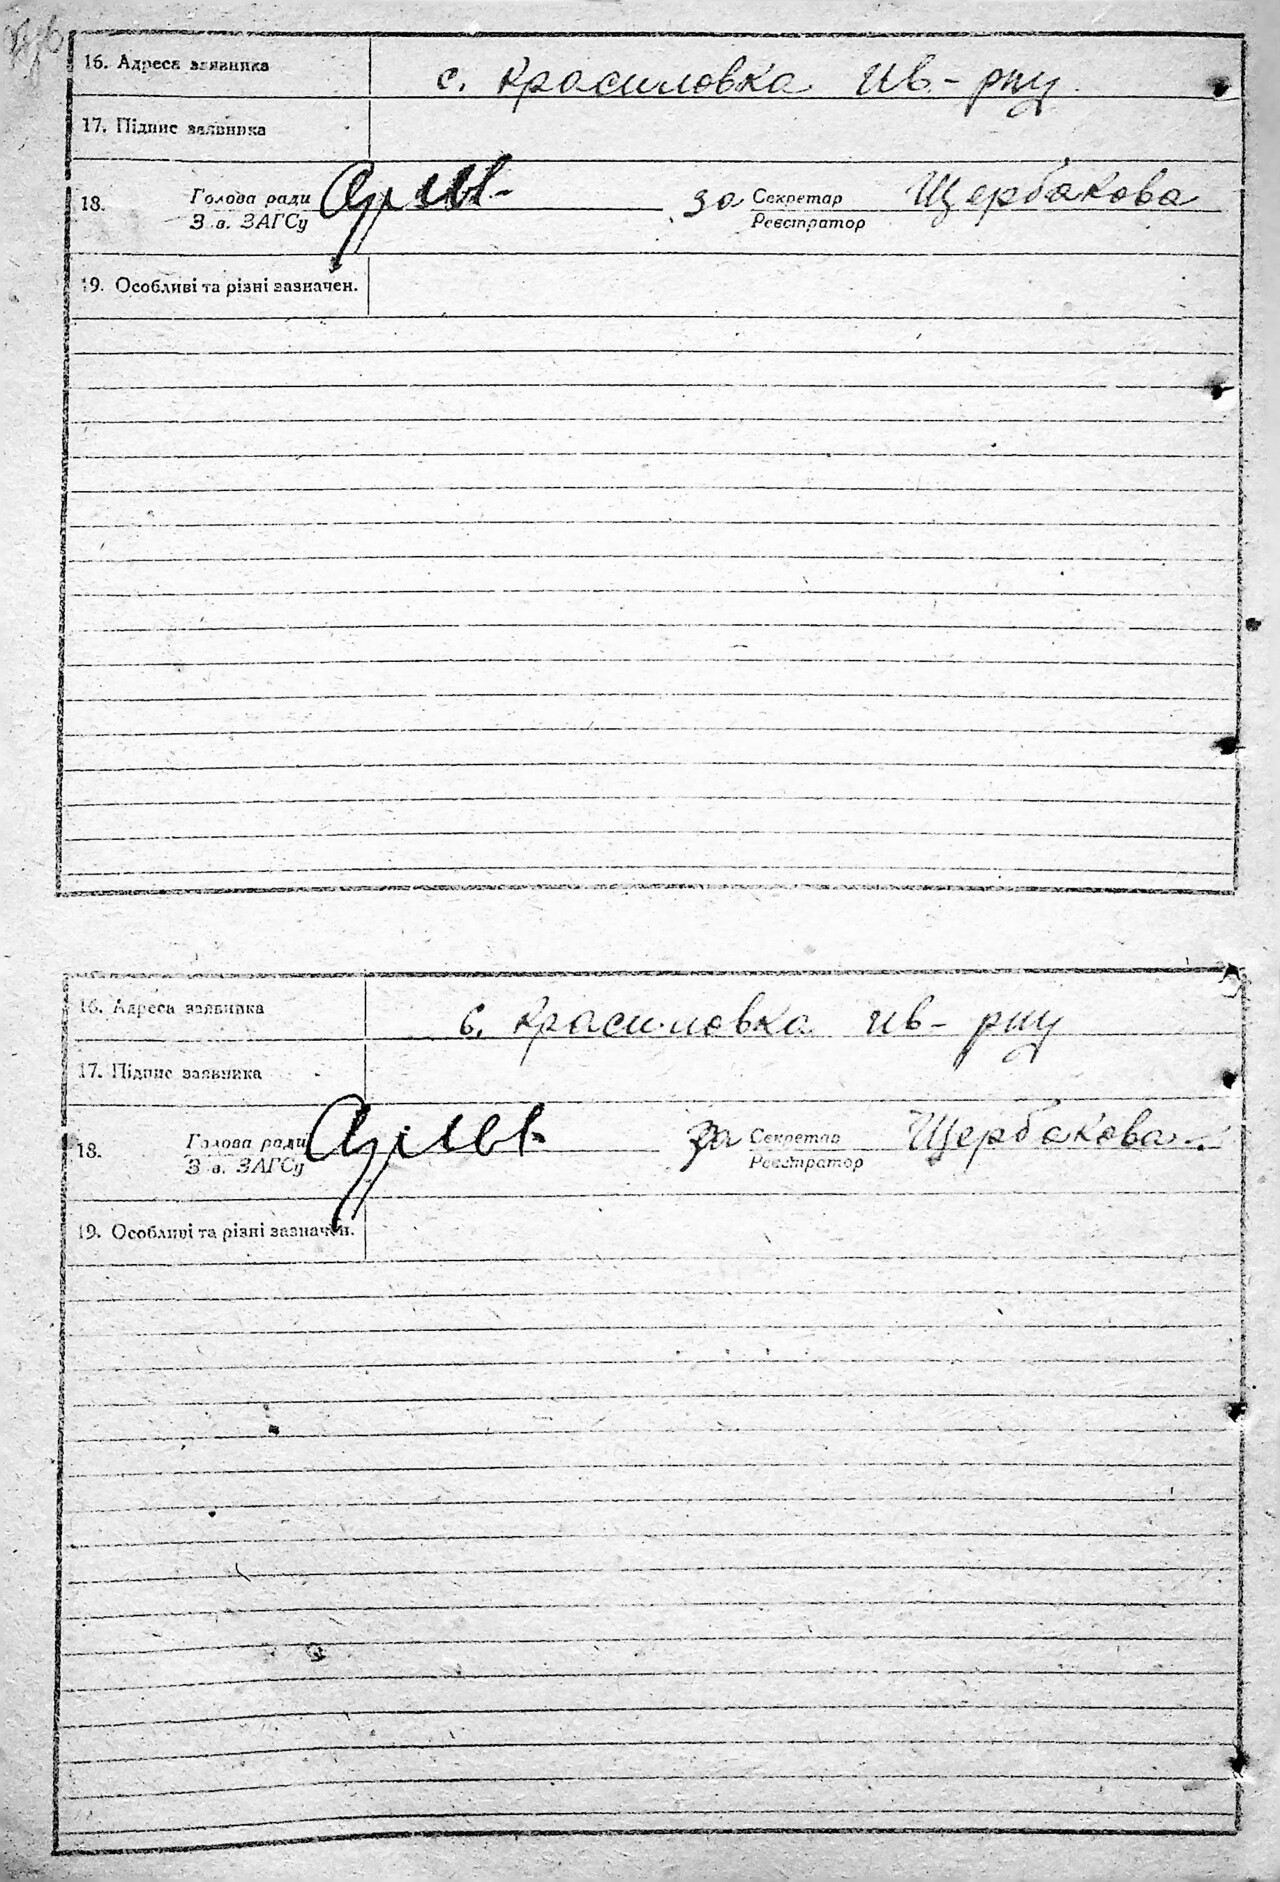 16. Адреса заявника с. Красиловка Ив-рну
17. Підпис заявника
18. Голова ради за Секретар Щербакова
З в. ЗАГСу Реєстратор
19. Особливі та різні зазначен.
16. Адреса заявника с. Красиловка Ив-рну
17. Підпис заявника
18. Голова ради за Секретар Щербакова
З в. ЗАГСу Реєстратор
19. Особливі та різні зазначен.